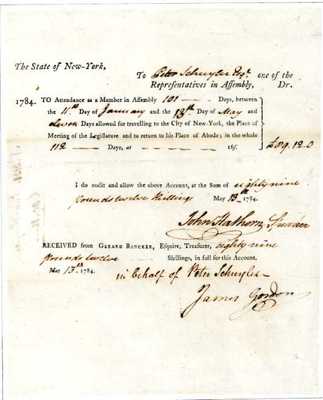 The State of New-York,
To Peter Schuyler Esqr. one of the
Representatives in Assembly, Dr.
1784. TO Attendance as a Member in Assembly 101 Days, between
the Day of January and the 13th Day of May and
Days allowed for travelling to the City of New-York, the Place of
Meeting of the Legislature and to return to his Place of Abode; in the whole
112 Days, at 16/. £89.12.0
I do audit and allow the above Account, at the Sum of eighty nine
pounds twelve shillings May 13th. 1784.
John Hathorn Speaker
RECEIVED from GERARD BANCKER, Esquire, Treasurer, eighty nine
pounds twelve Shillings, in full for this Account.
May 13th 1784.
in behalf of Peter Schuyler
James Gordon